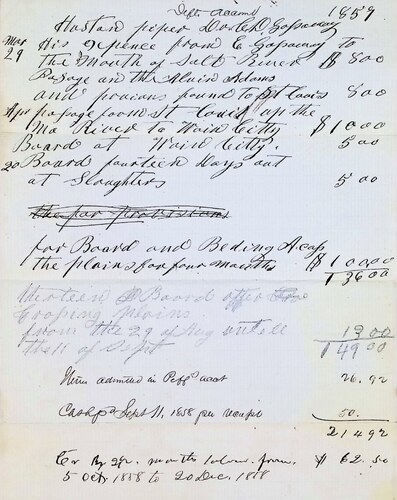 Deft. accounts 1859
Hastand piper Dr to D. Gassaway
Mar His Expence from C Gassaway to
29 the Mouth of Salt River $ 500
Passage on the Alvin Adams
and provisions bound to St Louis 800
Apr passage from St Louis up the
Mo River to Wind Citty $ 10 00
Board at Wind Citty 5 00
20 Board fourteen Days out
at Sloughters 5 00
the for provisions
for Board and Beding Acoss
the plains for four months $ 100 00
136 00
thirteen Board after
Croping plains
from the 29 of Aug untill
the 11 of Sept 13 00
149 00
Items admitted in Peff's acct 26.92
Cash pd Sept 11, 1858 per receipt 50.
214 92
Cr By 2½ months labour from $ 62.50
5 Oct 1858 to 20 Dec. 1858